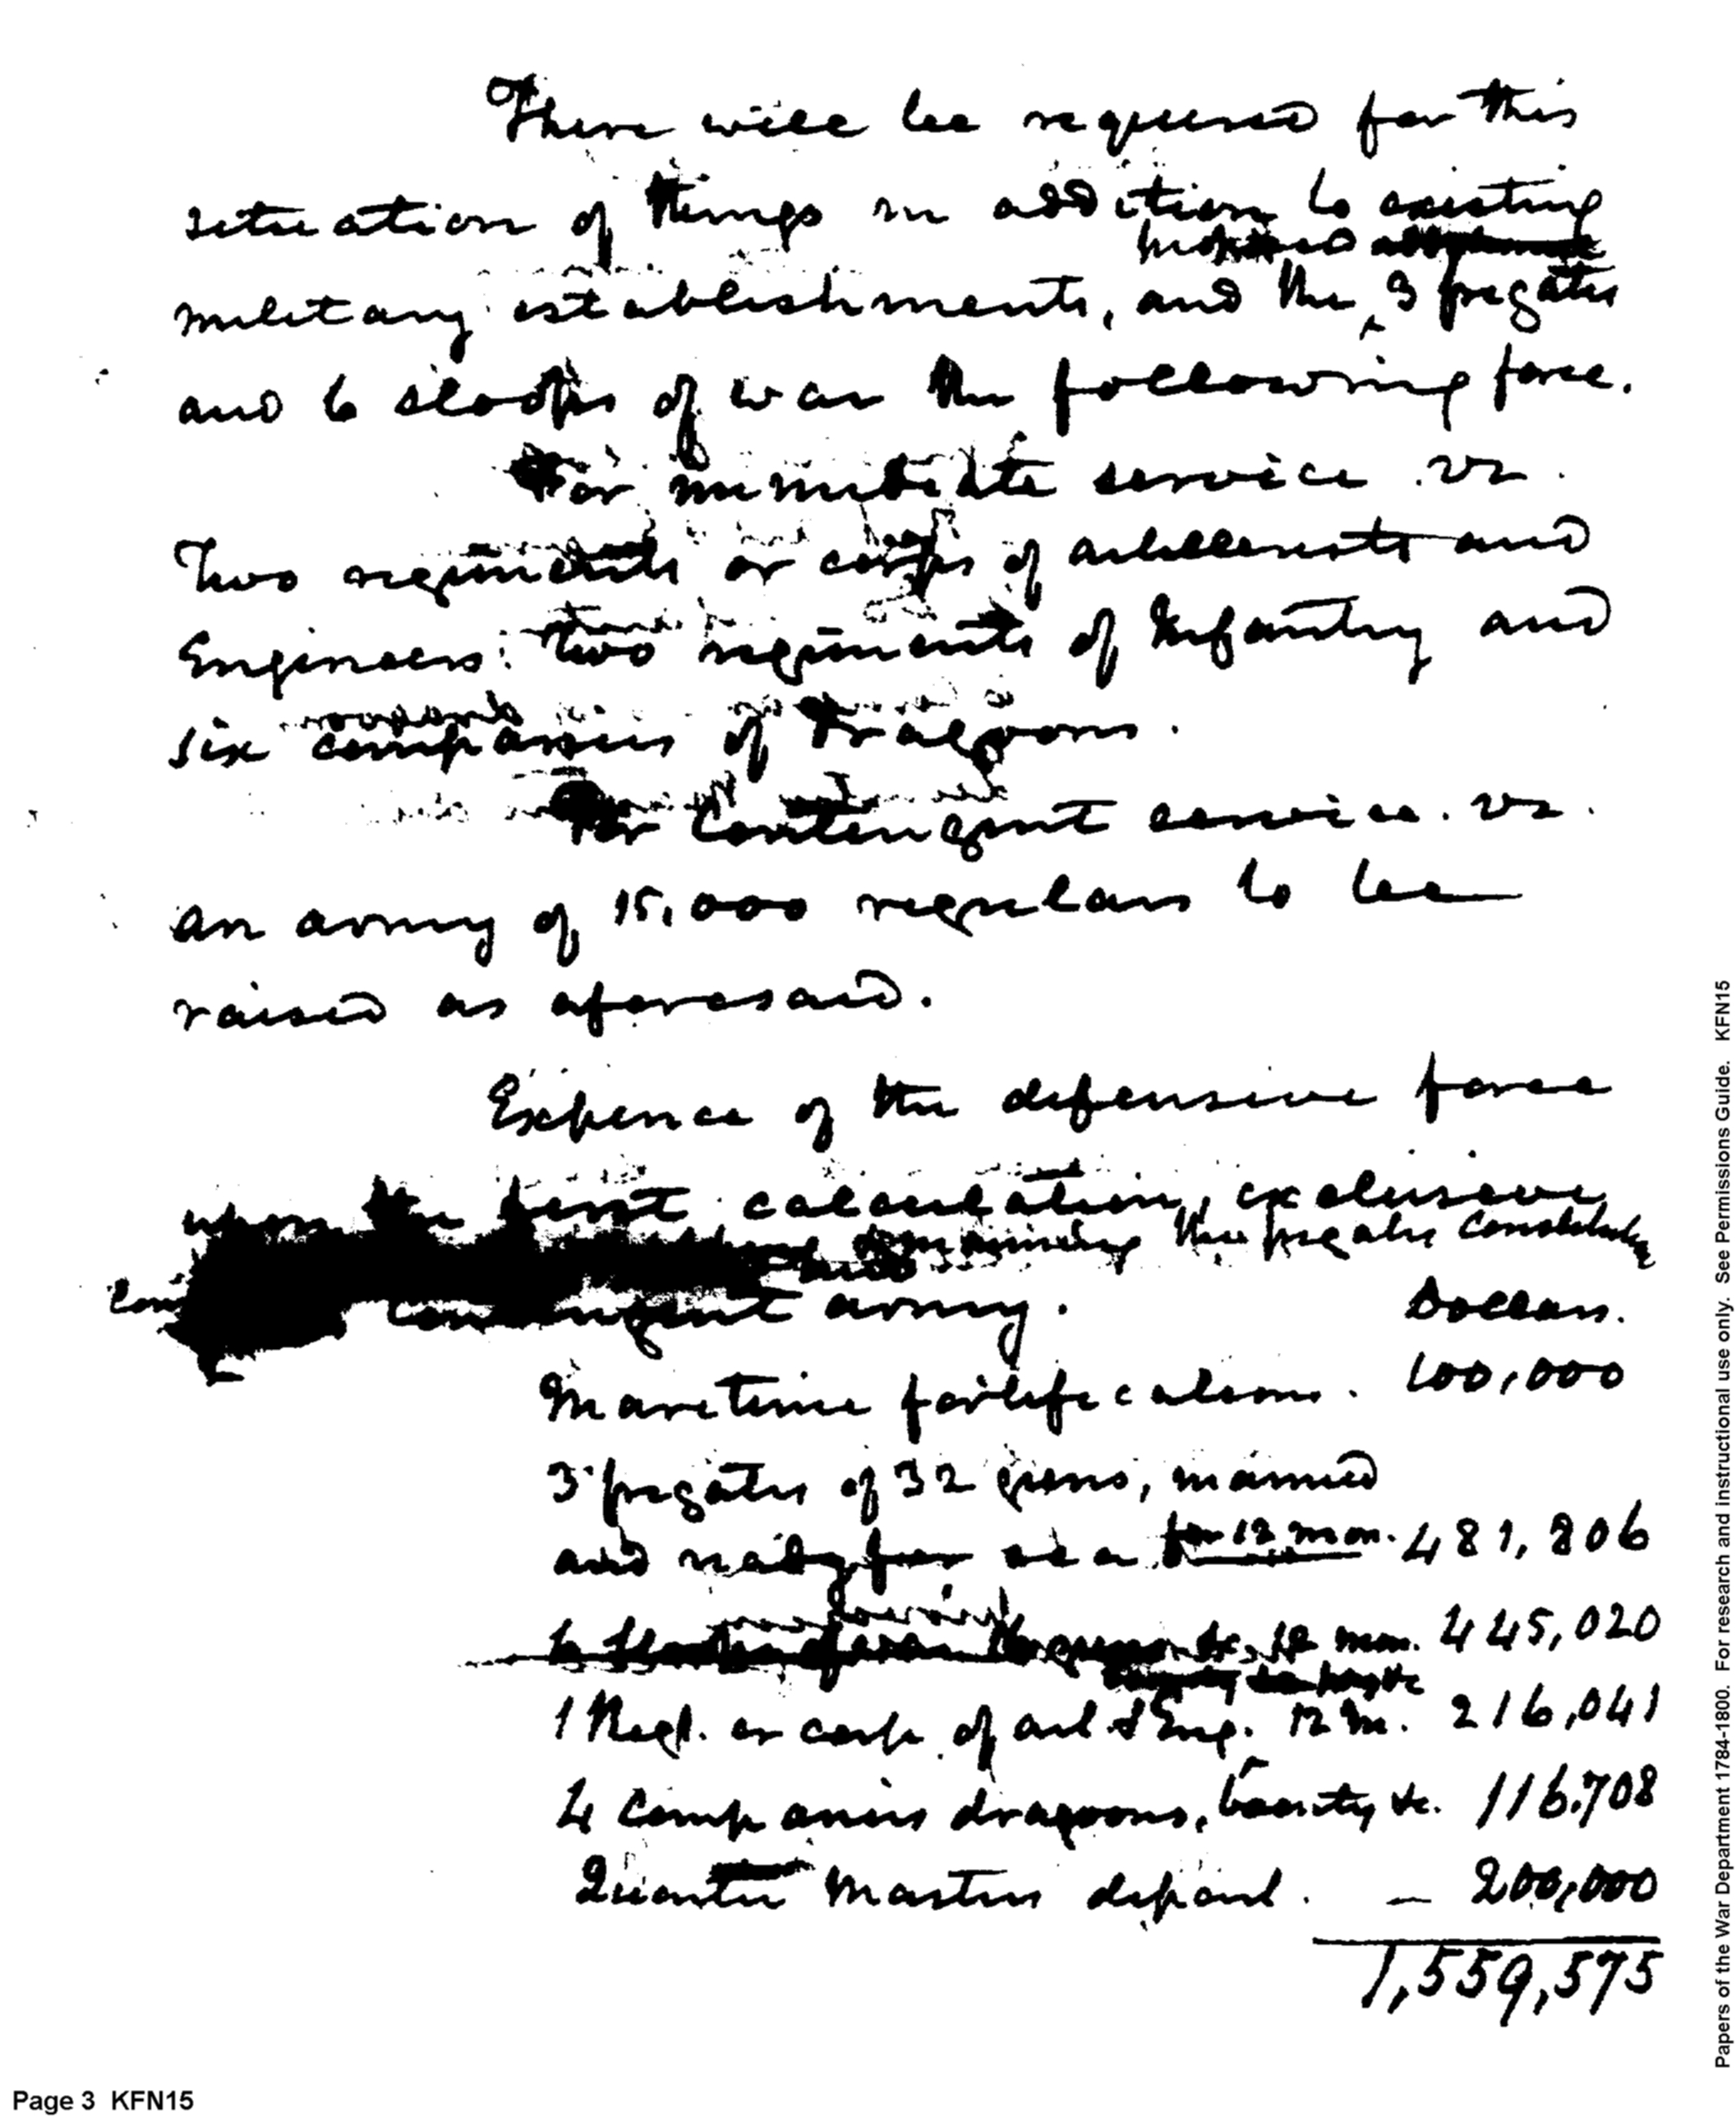 There will be required for this
situation of things in addition to existing
military establishments, and the 3 frigates
and 6 sloops of war the following force.
For immediate service. vz.
Two regiments or corps of artillerists and
Engineers: two regiments of Infantry and
six companies of Dragoons.
For Contengent service. vz.
an army of 15,000 regulars to be
raised as aforesaid.
Expence of the defensive force
upon the first calculation, exclusive
the frigates
contengent army. Dollars.
Maretime fortifications. 100,000
3 frigates of 32 guns, manned
and ready for sea for 12 mon. 481,806
6 Sloops of war guns &c. 12 mon. 445,020
1 Regt. or corps of art. & Eng. 12 m. 216,041
4 Companies dragoons, bounty &c. 116.708
Quarter Masters depart. — 200,000
1,559,575
Page 3 KFN15
Papers of the War Department 1784-1800. For research and instructional use only. See Permissions Guide. KFN15